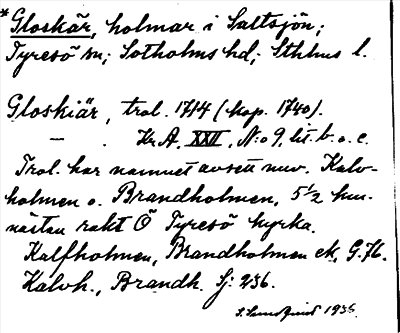 *Gloskär, holmar i Saltsjön;
Tyresö sn; Sotholms hd; Sthlms l.
Gloskiär, trol. 1714 (kop. 1740).
— . Kr.A. XXII, N:o 9, lit. b. o. c.
Trol. har namnet avsett nuv. Kalv-
holmen o. Brandholmen, 5½ km.
nästan rakt Ö Tyresö kyrka.
Kalfholmen, Brandholmen ek, G. 76.
Kalvh., Brandh. Sj: 236.
1936